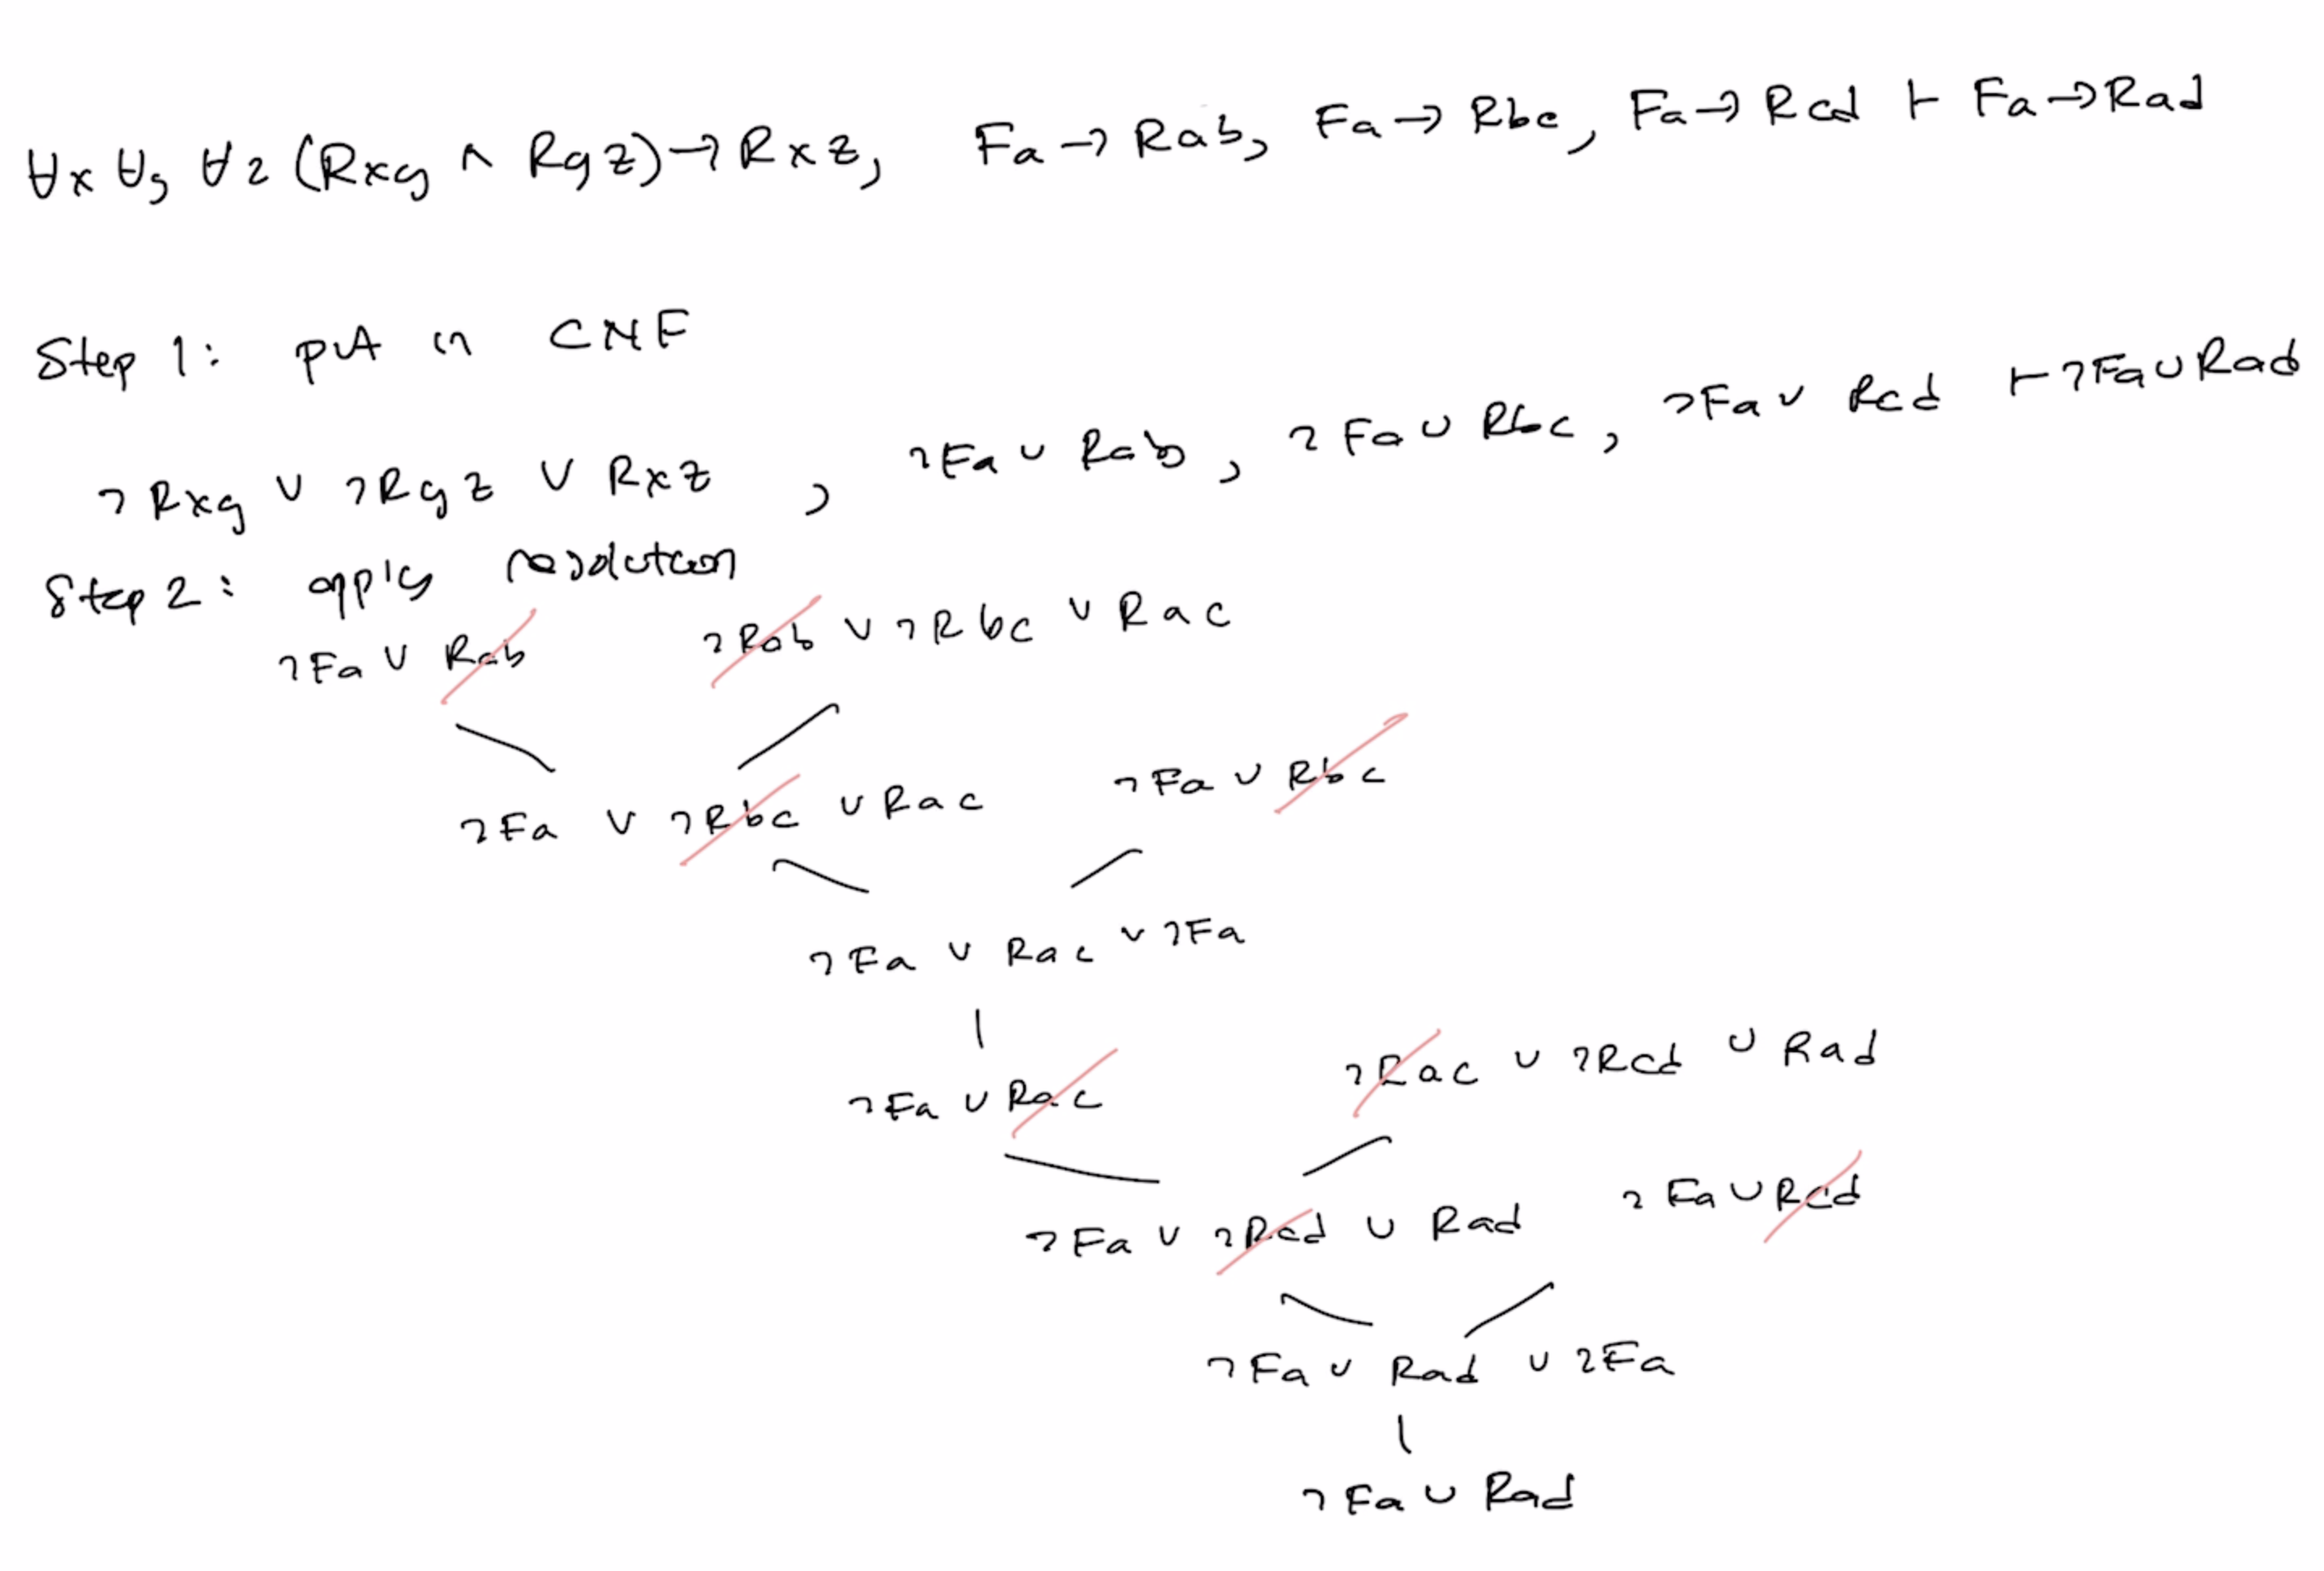 ∀x ∀y ∀z (Rxy ∧ Ryz) → Rxz, Fa → Rab, Fa → Rbc, Fa → Rcd ⊢ Fa → Rad
Step 1: put in CNF
¬Rxy ∨ ¬Ryz ∨ Rxz, ¬Fa ∨ Rab, ¬Fa ∨ Rbc, ¬Fa ∨ Rcd ⊢ ¬Fa ∨ Rad
Step 2: apply resolution
¬Fa ∨ Rab ¬Rab ∨ ¬Rbc ∨ Rac
¬Fa ∨ ¬Rbc ∨ Rac ¬Fa ∨ Rbc
¬Fa ∨ Rac ∨ ¬Fa
¬Fa ∨ Rac ¬Rac ∨ ¬Rcd ∨ Rad
¬Fa ∨ ¬Rcd ∨ Rad ¬Fa ∨ Rcd
¬Fa ∨ Rad ∨ ¬Fa
¬Fa ∨ Rad